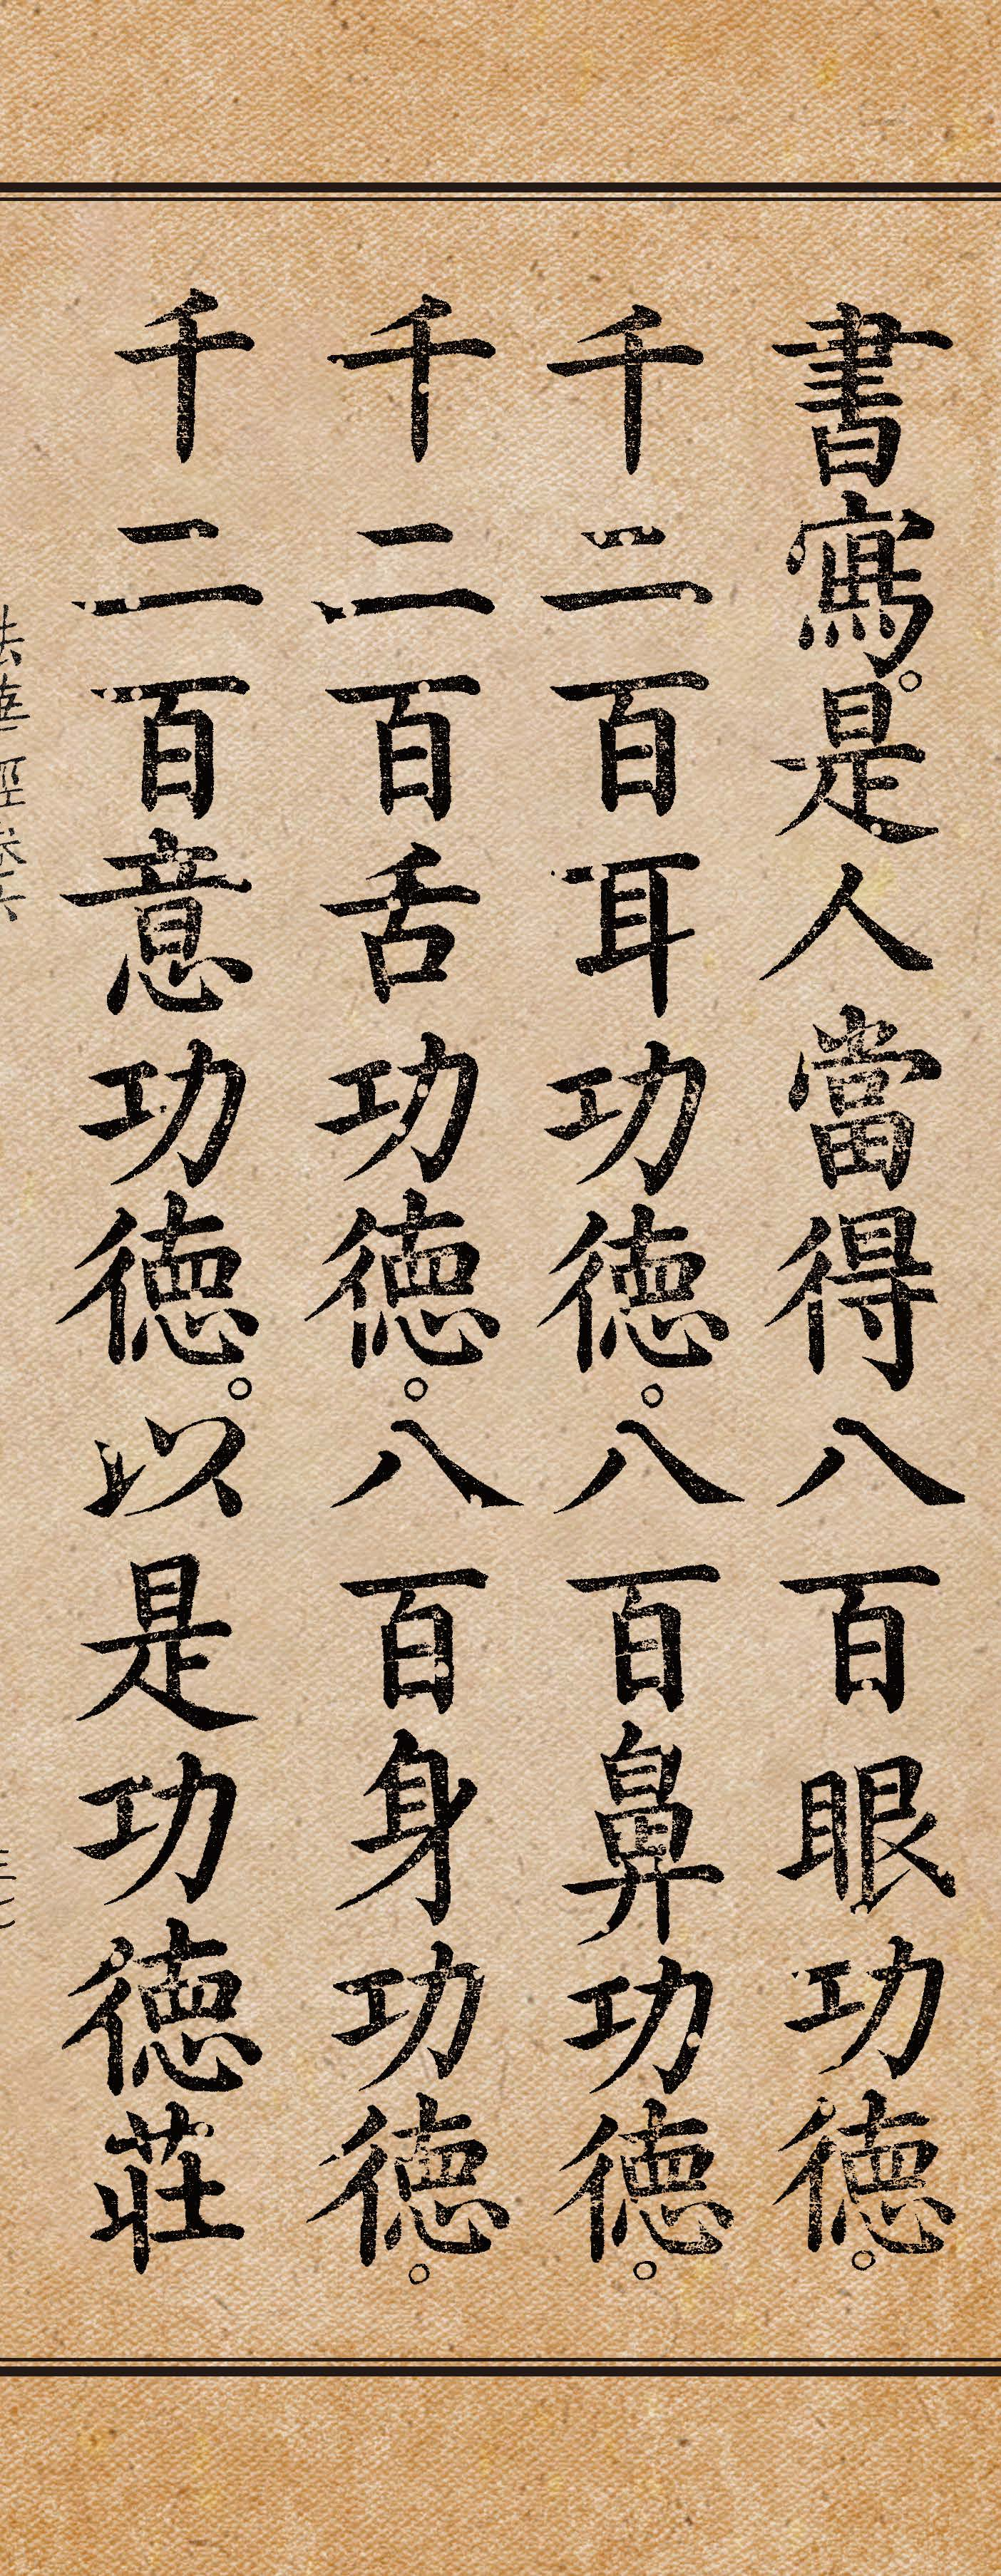 書寫。是人當得八百眼功德。
千二百耳功德。八百鼻功德。
千二百舌功德。八百身功德。
千二百意功德。以是功德莊
法華經卷六